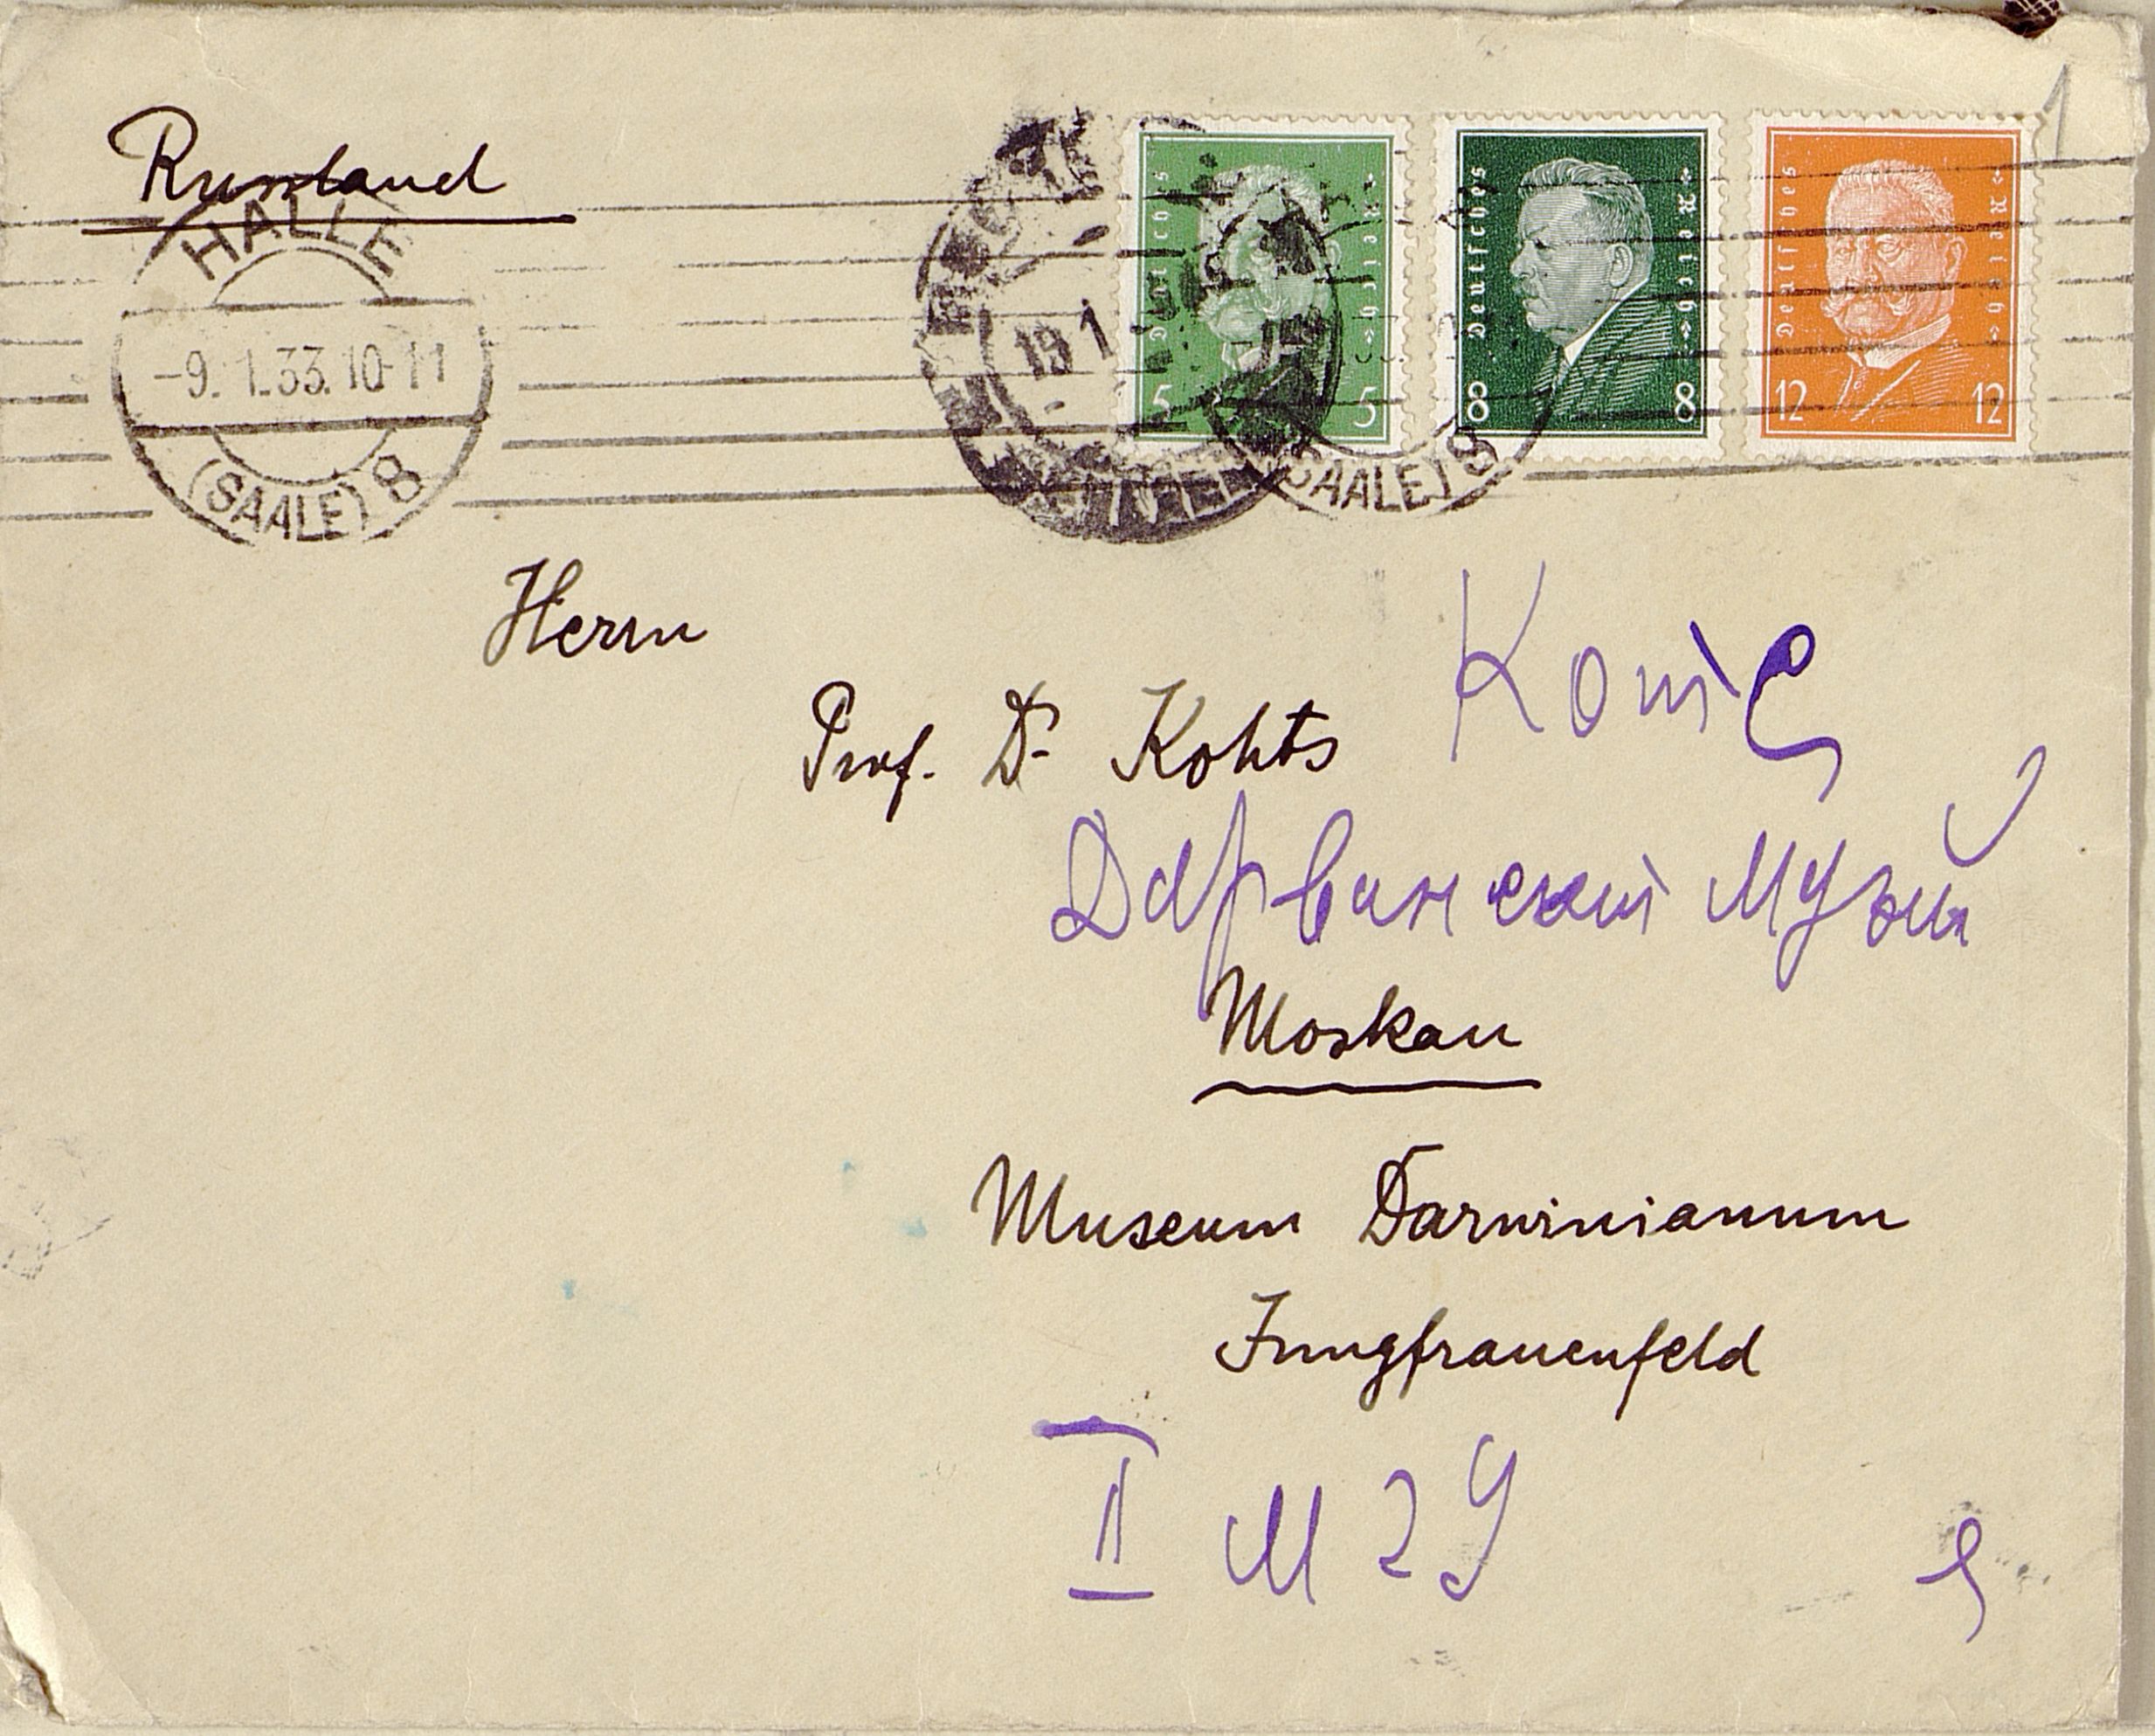 Russland
HALLE
-9. 1.33. 10-11
(SAALE) 8
19 1
(SAALE) 8
Deutsches Reich
5 5
Deutsches Reich
8 8
Deutsches Reich
12 12
Herrn
Prof. Dr. Kohts
Дарвинский Музей
Moskau
Museum Darwinianum
Jungfrauenfeld
II М 29